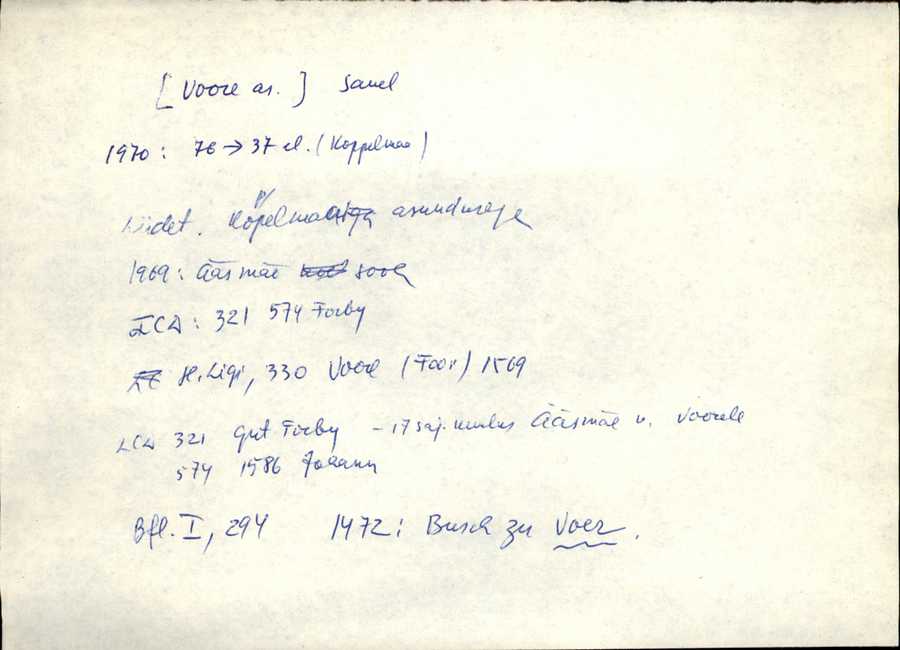 [Voore as.] Sauel
1970: 76 → 37 el. (Koppelmaa)
Liidet. Koppelmaa asundusega
1969: Ääsmäe sook
LCD: 321 574 Forby
H. Ligi, 330 Voore (Foor) 1569
LCD 321 Gut Forby - 17 saj. kuulus Ääsmäe v. Voorele
574 1586 Johann
Bfl. I, 294 1472: Busch zu Voer.